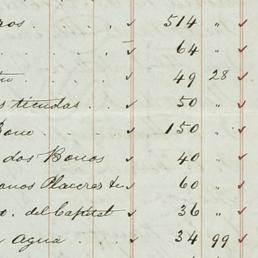 ros . . . ✓ 514 " ✓
. . . 64 " ✓
. . . ✓ 49 28 ✓
s tiendas . ✓ 50 " ✓
Bono . ✓ 150 " ✓
dos Bonos ✓ 40 " ✓
onos Placeres &c ✓ 60 " ✓
o. del Capitel ✓ 36 " ✓
Agua . . ✓ 34 99 ✓